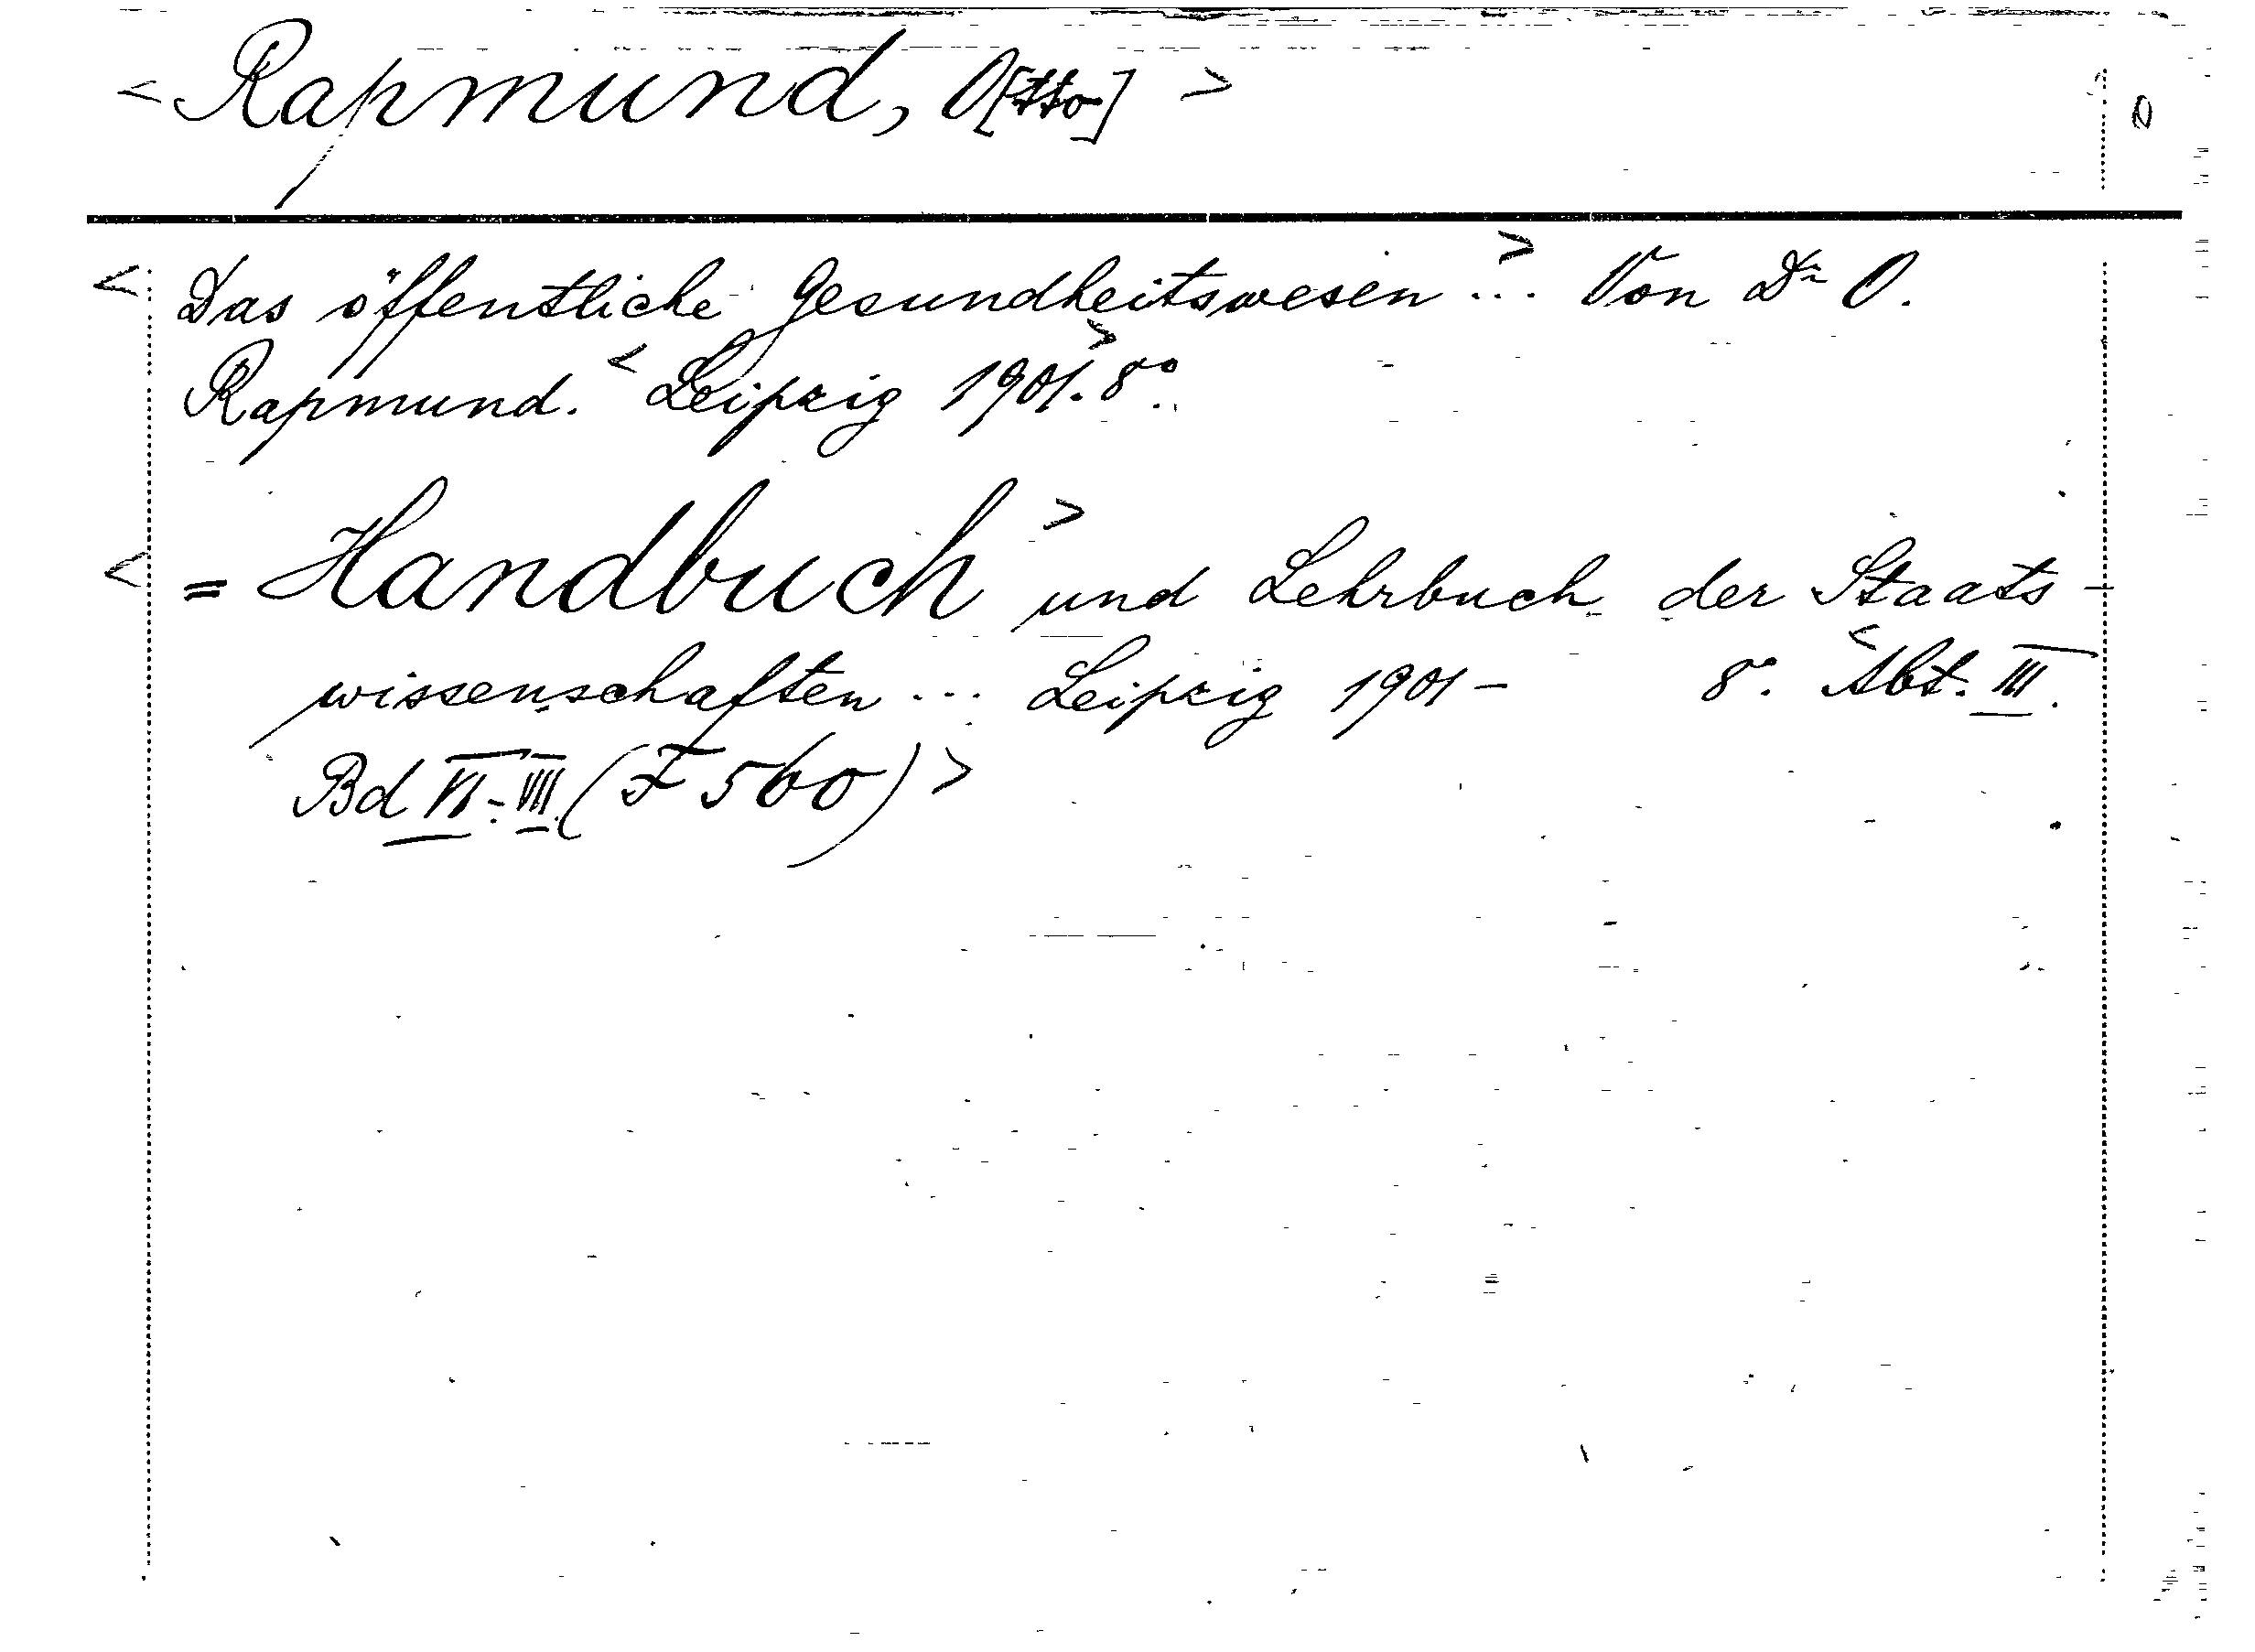 < Rapmund, O[tto] > 0
< Das öffentliche Gesundheitswesen ...> Von Dr O.
Rapmund. < Leipzig 1901.> 8°.
< = Handbuch > und Lehrbuch der Staats-
wissenschaften ... Leipzig 1901 - 8°. < Abt. III.
Bd VI-VII. (F 560) >